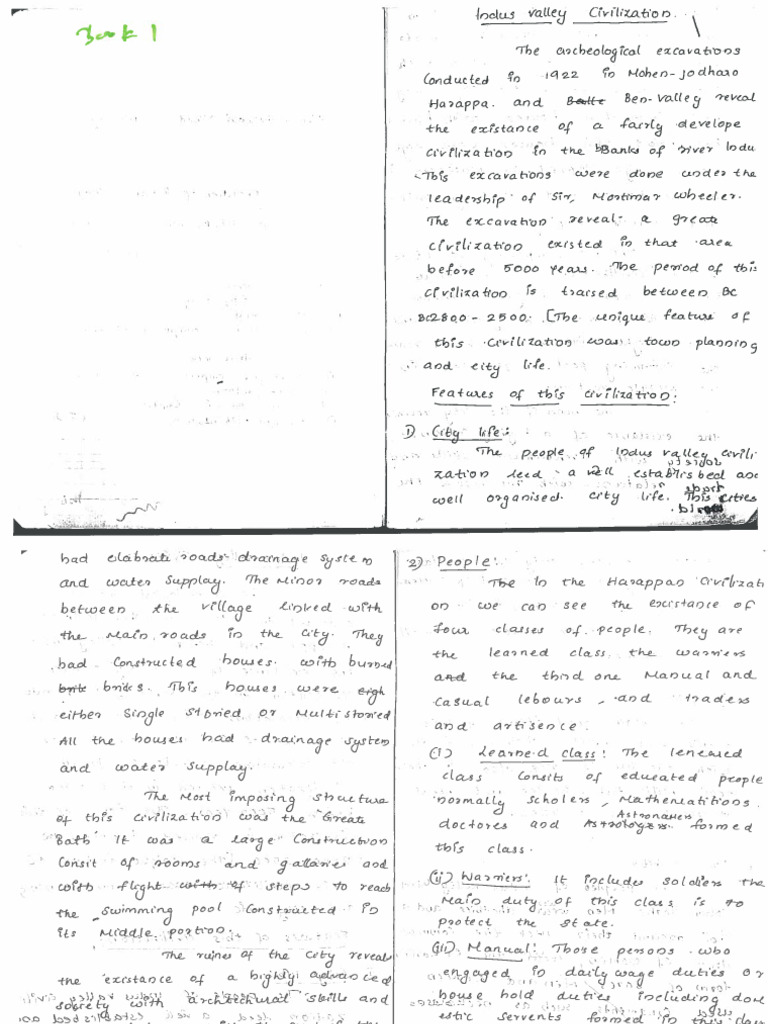 Book 1
Indus valley Civilization.
The archeological excavations
Conducted in 1922 in Mohen-jodharo
Harappa. and Ben-valley reveal
the existance of a fairly develope
civilization in the Banks of river Indu
This excavations were done under the
leadership of Sir, Mortimar wheeler.
The excavation reveal a great
civilization existed in that area
before 5000 years. The period of this
civilization is traised between BC
BC2800 - 2500. [The unique feature of
this civilization was town planning
and city life.
Features of this civilization:
1) City life:
The people of Indus valley civili
zation leed a well established and
well organised city life. This cities
had elabrate roads drainage system
and water supply. The Minor roads
between the village linked with
the Main roads in the city. They
had constructed houses with burned
brikes. This houses were
either single storied or Multistoried
All the houses had drainage system
and water supply.
The Most imposing structure
of this civilization was the Great
Bath It was a large construction
Consit of rooms and gallaries and
with flight of steps to reach
the swimming pool constructed in
its Middle portion.
The ruines of the city reveal
the existance of a highly advanced
society with architectural skills and
2) People:
In the Harappan Civilizati
on we can see the existance of
four classes of people. They are
the learned class, the warriers
the third one Manual and
casual lebours, and traders
and artisence.
(i) Learned class: The leneared
class consits of educated people
normally scholers, Mathematitions.
Astronamers
doctores and Astrologers formed
this class.
(ii) Warriers: It includes soldiers the
Main duty of this class is to
protect the state.
(iii) Manual: Those persons who
engaged in daily wage duties or
house hold duties including dom
estic servents formed in this class